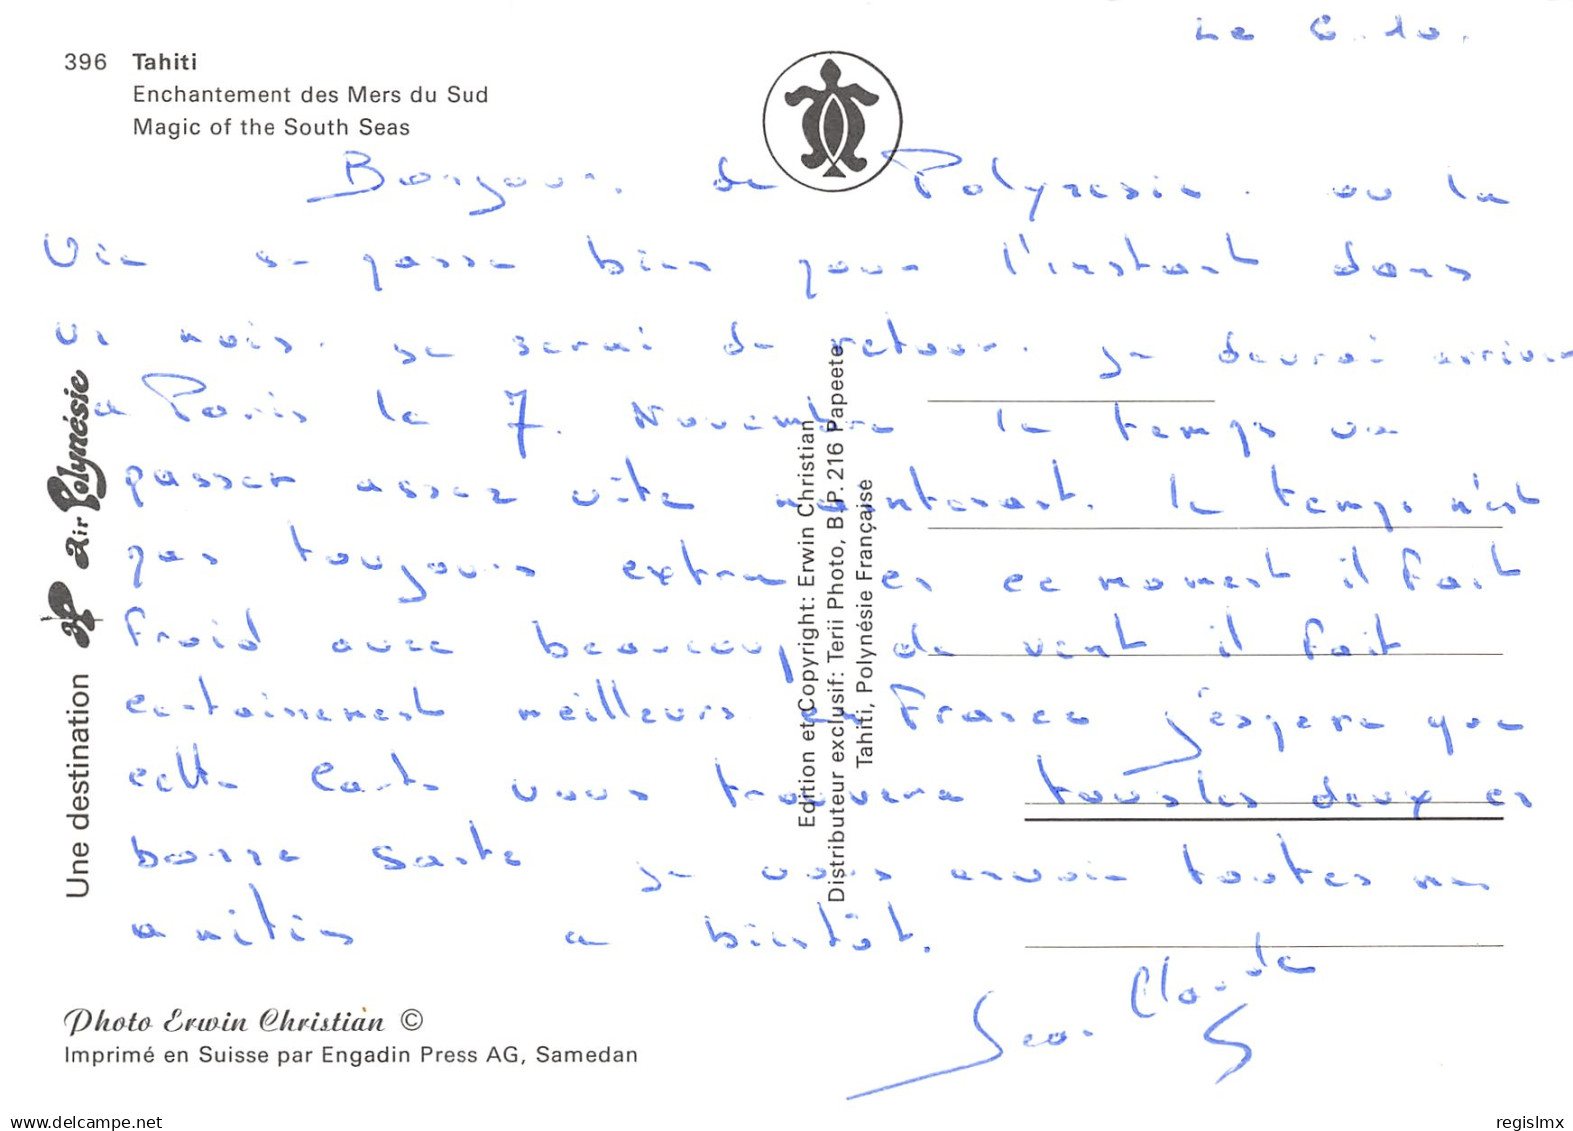 Le 6.10.
396 Tahiti
Enchantement des Mers du Sud
Magic of the South Seas
Bonjour. de Polynesie. ou la
Vie se passe bien pour l'instant dans
un mois. je serai de retour. je devrai arriver
a Paris le 7. Novembre le temps va
passer assez vite maintenant. le temps n'est
pas toujours extra en ce moment il fait
froid avec beaucoup de vent il fait
certainement meilleurs en France j'espere que
cette carte vous trouvera tous les deux en
bonne sante je vous envoie toutes mes
amities a bientôt.
Jean Claude
Une destination air Polynésie
Edition et Copyright: Erwin Christian
Distributeur exclusif: Terii Photo, B.P. 216 Papeete
Tahiti, Polynésie Française
Photo Erwin Christian ©
Imprimé en Suisse par Engadin Press AG, Samedan
delcampe.net
regislmx